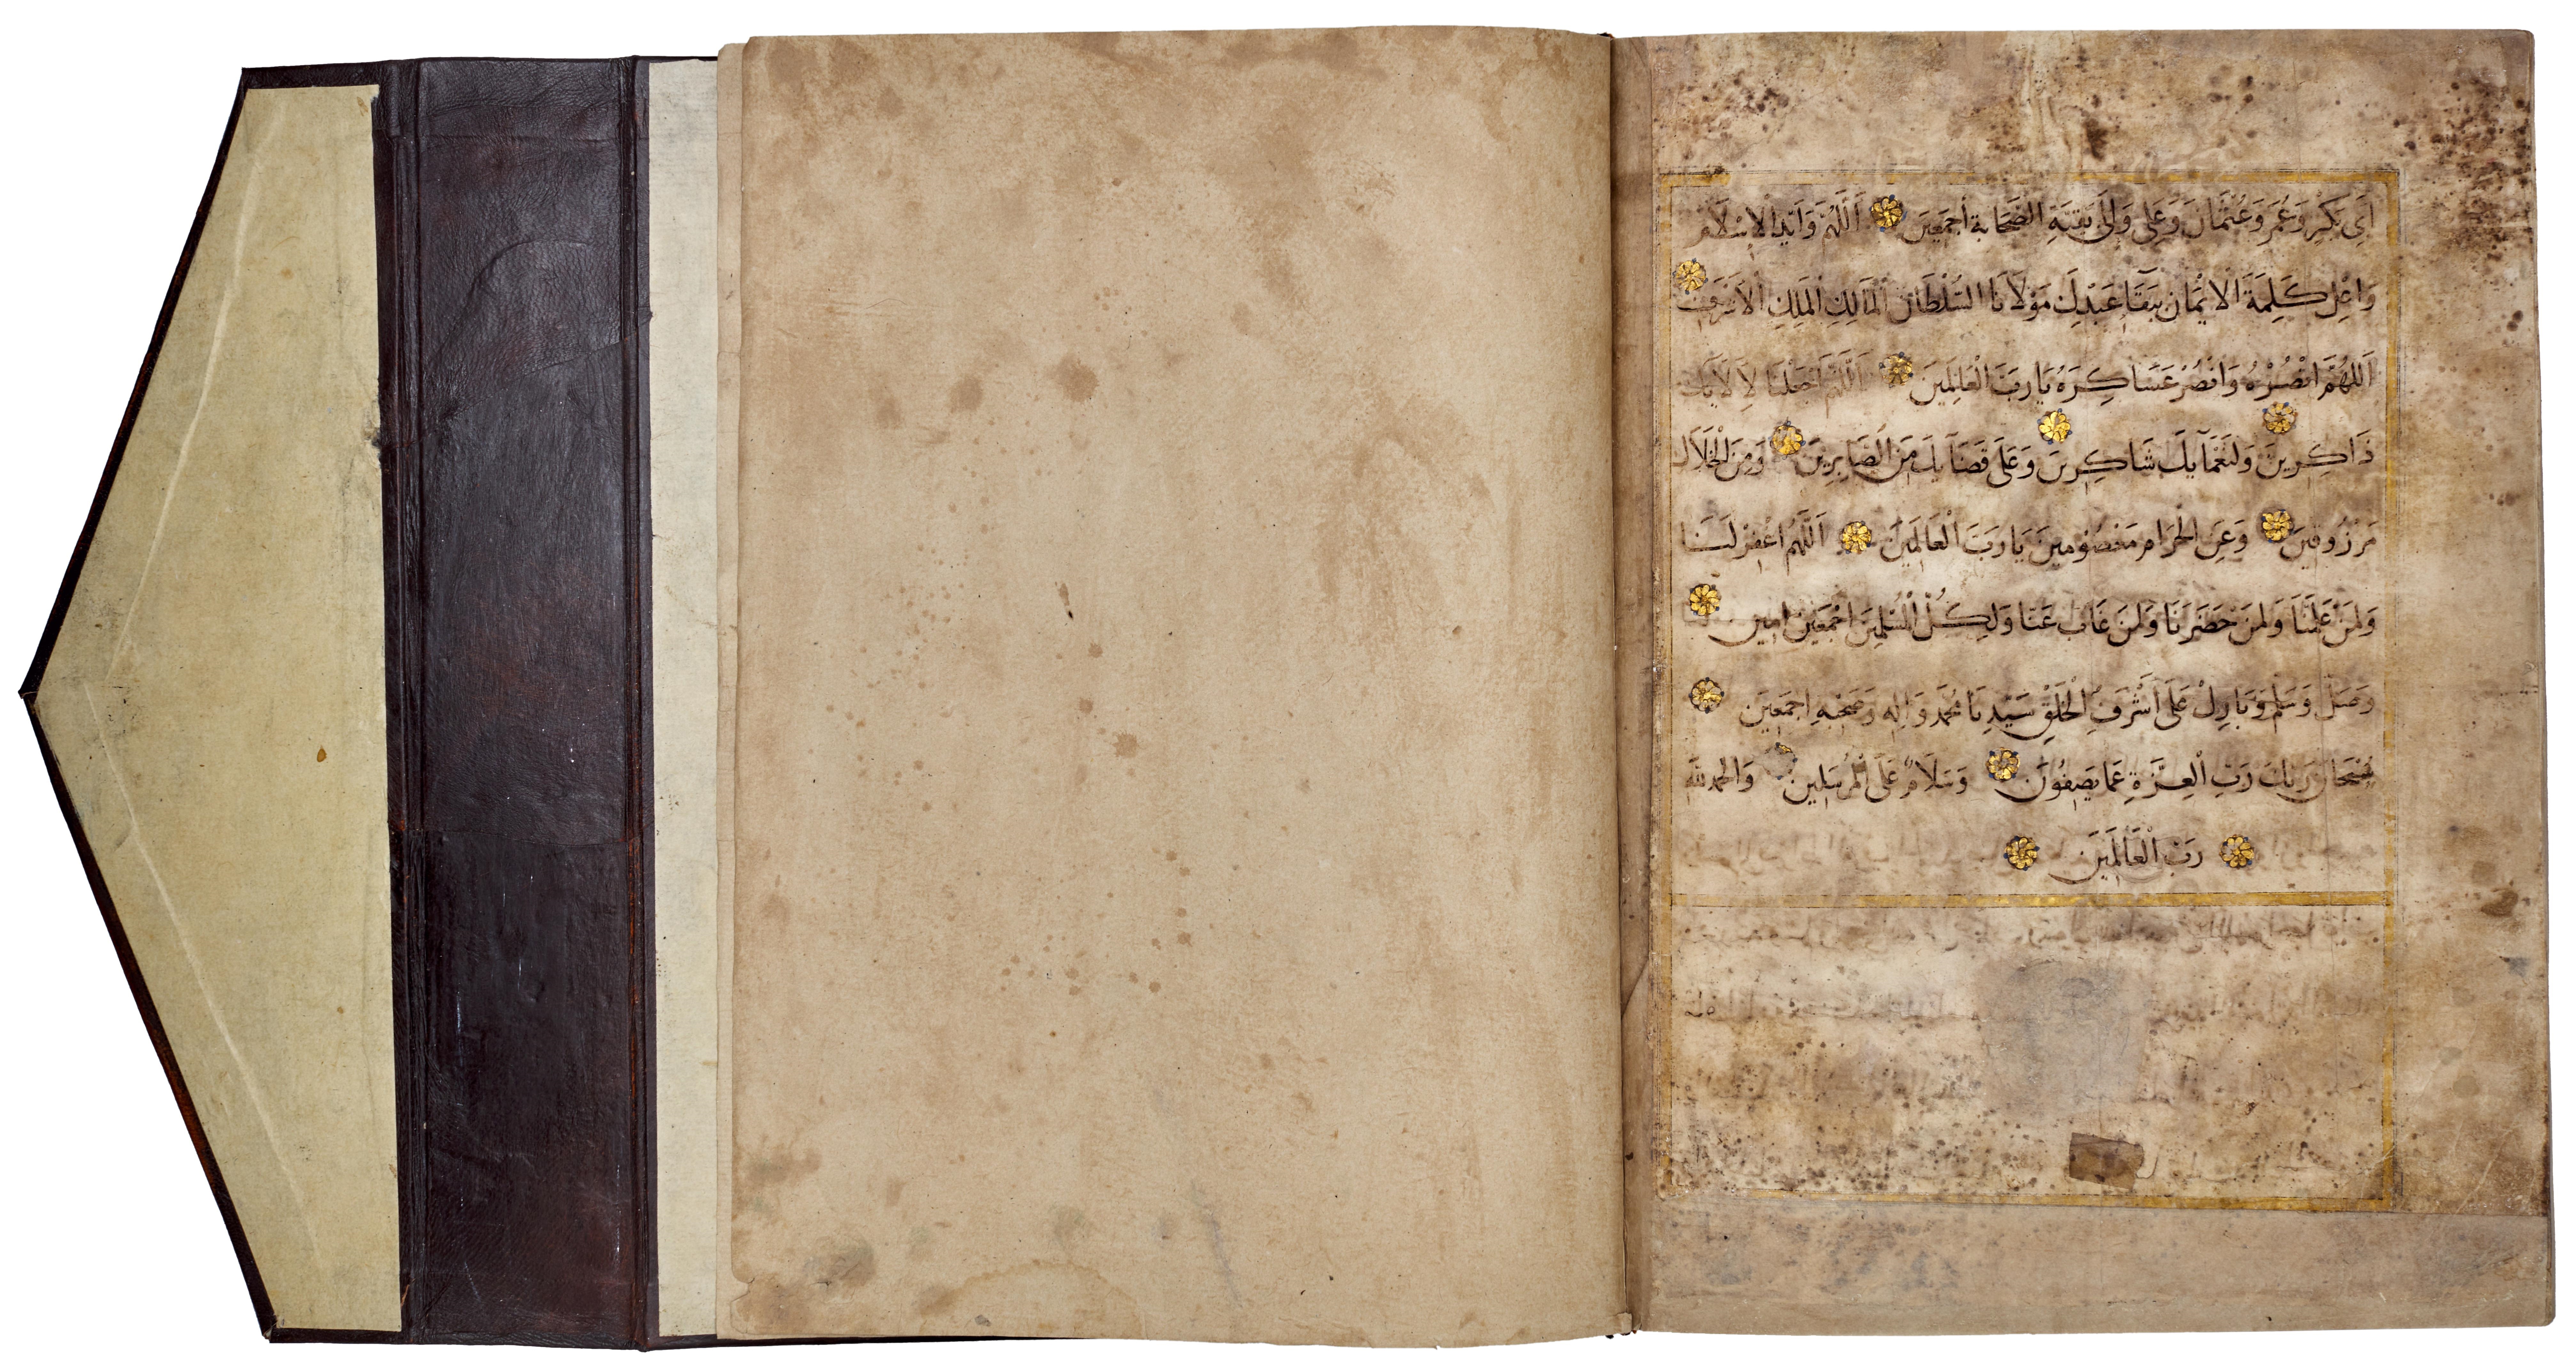 أَبِي بَكْرٍ وَعُمَرَ وَعُثْمَانَ وَعَلِي وَإِلَى بَقِيَّةِ الصَّحَابَةِ أَجْمَعِينَ اَللَّهُمَّ وَأَيِّدِ الإِسْلَامَ
وَاعْلِ كَلِمَةَ الاِيْمَانِ بِبَقَاءِ عَبْدِكَ مَوْلَانَا السُّلْطَانِ الْمَالِكِ الْمَلِكِ الْأَشْرَفِ
اَللَّهُمَّ انْصُرْهُ وَانْصُرْ عَسَاكِرَهُ يَا رَبَّ الْعَالَمِينَ اَللَّهُمَّ اجْعَلْنَا لِآلَايِكَ
ذَاكِرِينَ وَلِنَعْمَآيِكَ شَاكِرِينَ وَعَلَى قَضَآيِكَ مِنَ الصَّابِرِينَ وَمِنَ الْحَلَالِ
مَرْزُوقِينَ وَعَنِ الْحَرَامِ مَعْصُومِينَ يَا رَبَّ الْعَالَمِينَ اَللَّهُمَّ اغْفِرْ لَنَا
وَلِمَنْ عَلَّمَنَا وَلِمَنْ حَضَرَنَا وَلِمَنْ غَابَ عَنَّا وَلِكُلِّ الْمُسْلِمِينَ اجْمَعِينَ امِين
وَصَلِّ وَسَلِّمْ وَبَارِكْ عَلَى أَشْرَفِ الْخَلْقِ سَيِّدِنَا مُحَمَّد وَالِهِ وَصَحْبِهِ اجْمَعِينَ
سُبْحَانَ رَبِّكَ رَبِّ الْعِزَّةِ عَمَّا يَصِفُونَ وَسَلَامٌ عَلَى الْمُرْسَلِينَ وَالْحَمْدُ لِلَّهِ
رَبِّ الْعَالَمِينَ